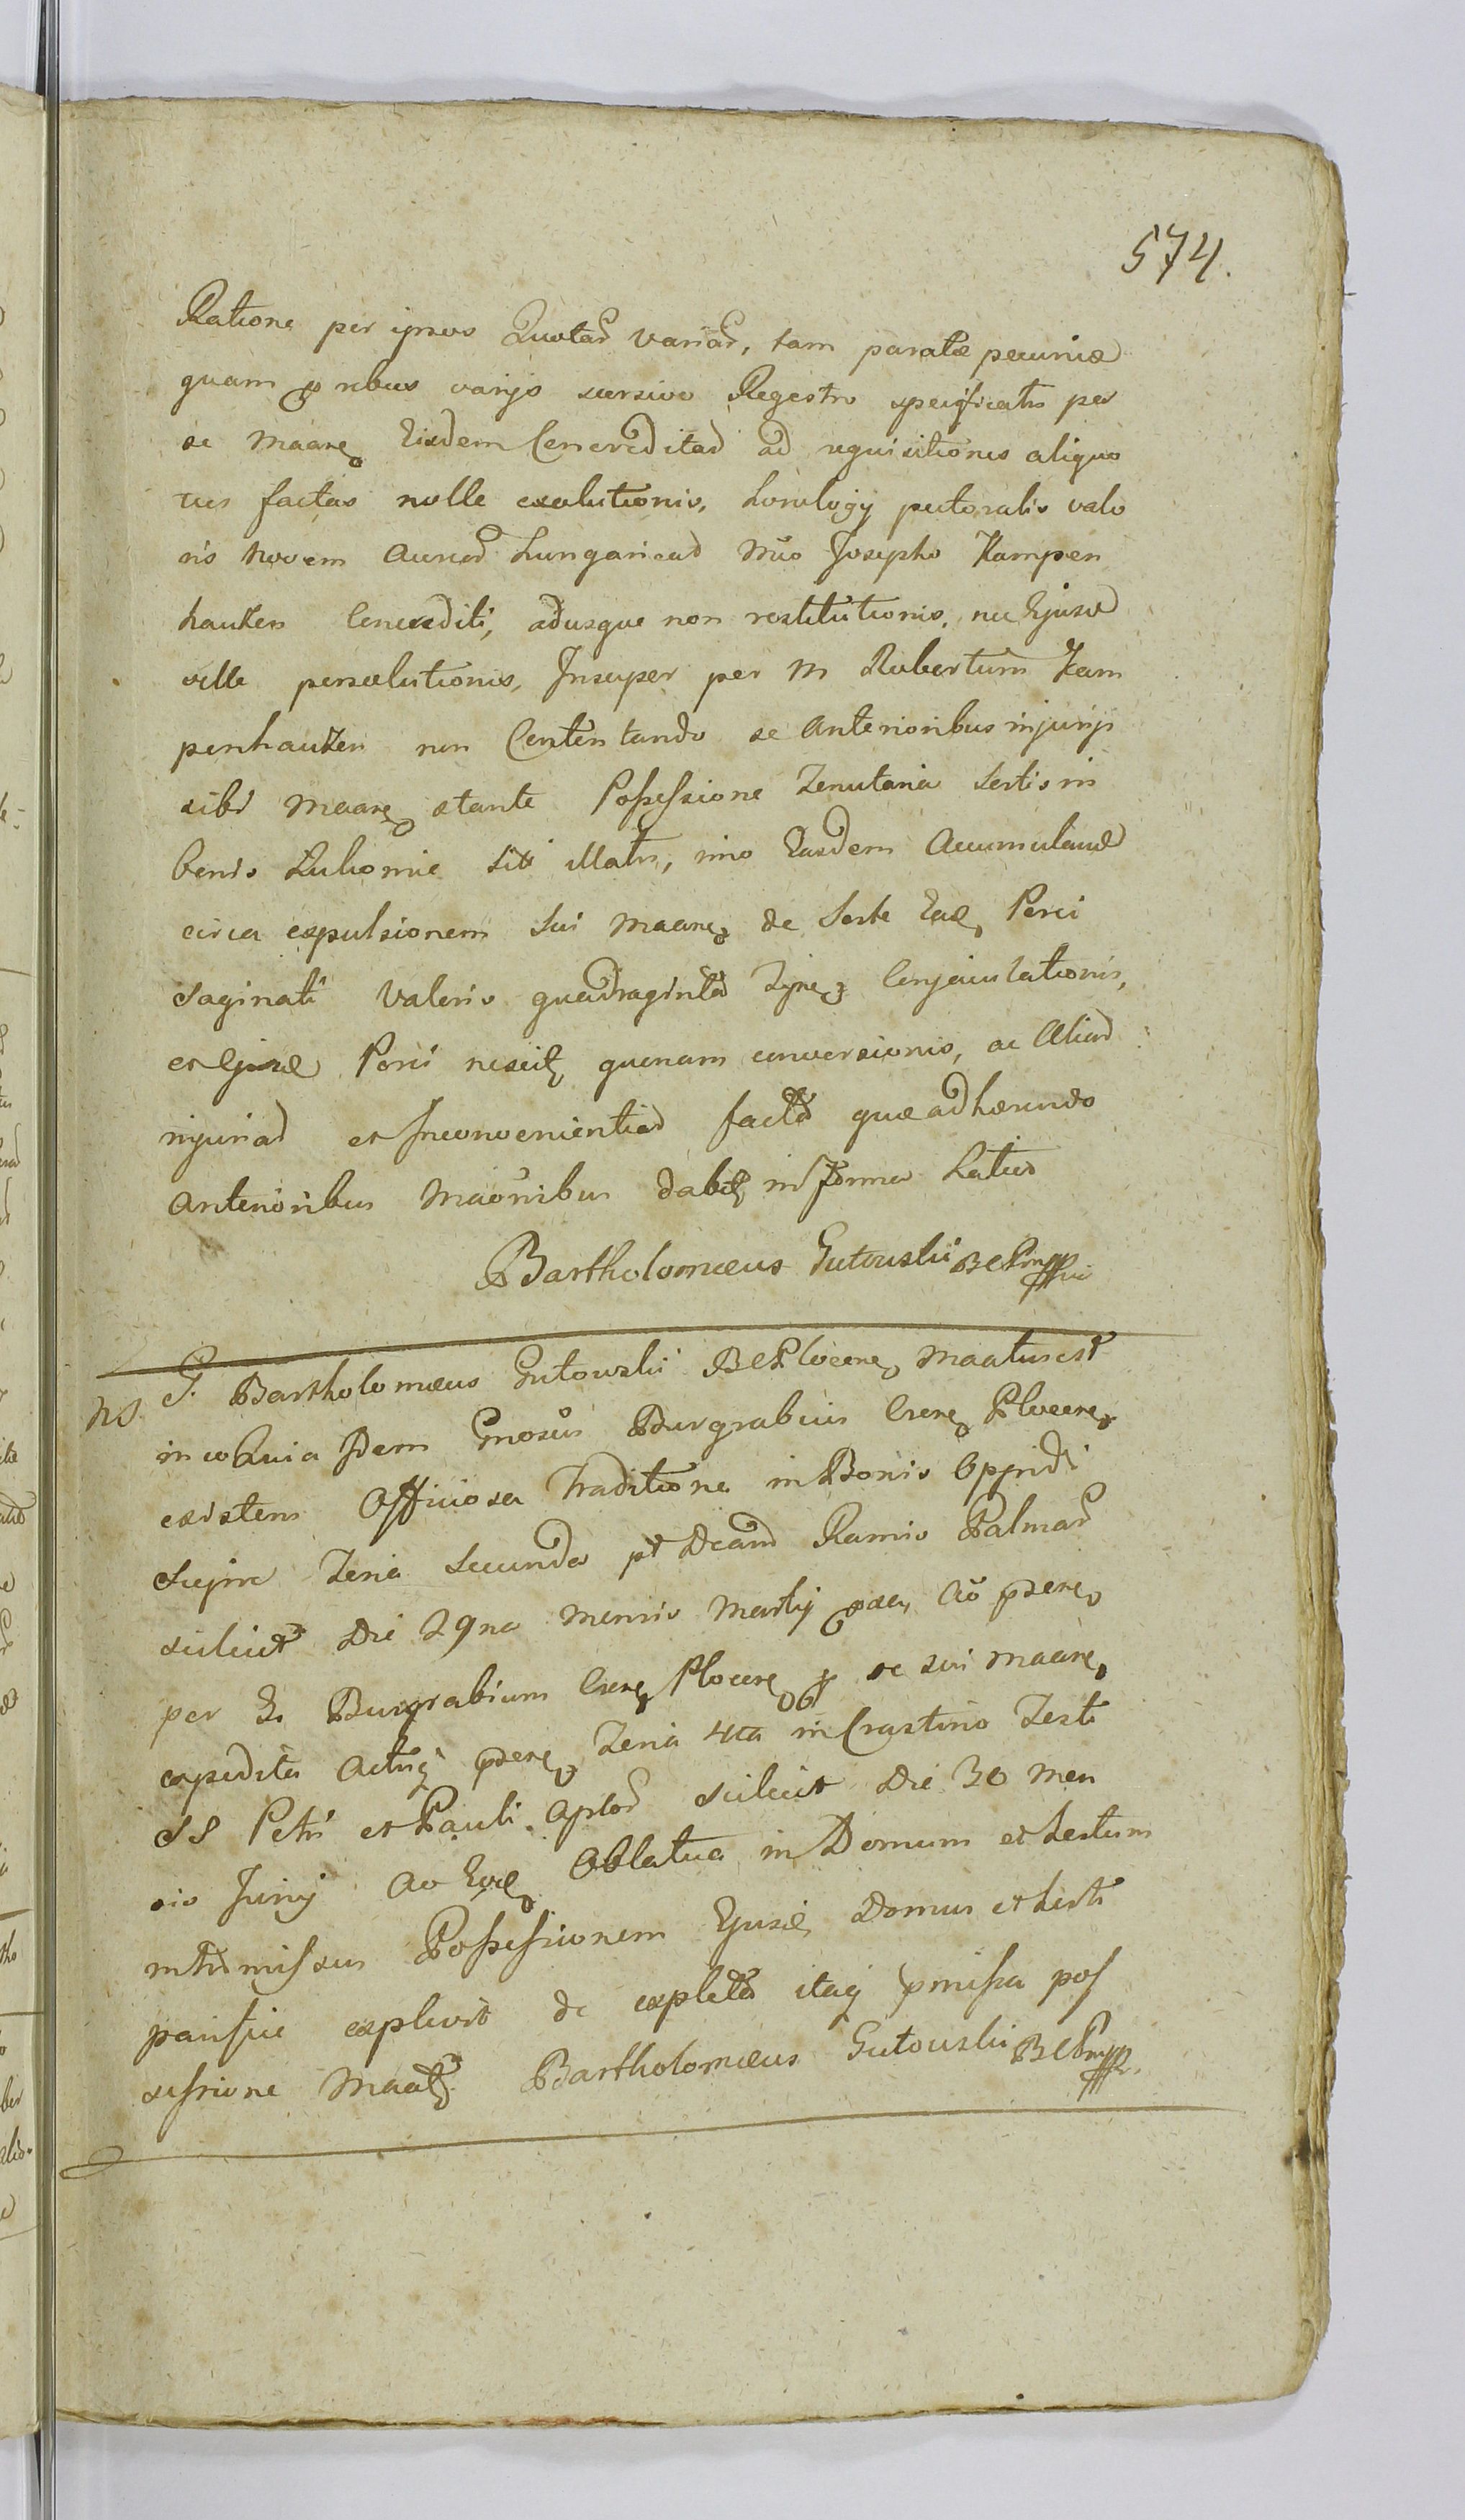 574.
Ratione per ipsos Quotad variad, tam paratæ pecuniæ
quam p rebus varijs seorsivo Regestro specificatis per
se Maane Eisdem Concreditad ad requisitiones aliquo
ties factas nolle exolutionis, horologij pectoralis valo
ris novem Aureod Hungaricad Mño Josepho Kampen
hauzen Concrediti, adusque non restitutionis, nec Ejusd
velle persolutionis, Insuper per M Robertum Kam
penhauzen non Contentando se Anterioribus injurijs
sibi Maane stante Possessione Tenutaria Sortis in
bonis Luhomie sit illatis, imo Easdem Accumuland
circa expulsionem Sui Maane de Sorte Ead Porci
Saginati Valoris quadraginta Tyne Conjaculationis,
et Ejusd Porci nescitz quonam conversionis, ac Aliad
injuriad et Inconvenientiad factad quæ adhærendo
Anterioribus Maõnibus dabitz in Forma Latius
Bartholomæus Gutowski BCPmppria
NS G. Bartholomæus Gutowski BCPlocene Maatus est
in eo Quia Idem Gnosus Burgrabius Crene Plocene
existens Officiosa Traditione in Bonis Oppidi
Sierpc Feria Secunda pt Dcand Ramis Palmad
scilicet Die 29na Mensis Martij Aõ pdene
per G. Burgrabium Crene Plocene p se sui Maane
expedita Actisq pdene Feria 4ta in Crastino Festi
SS Petri et Pauli Aplod scilicet Die 30 Men
sis Junij Ao Eod Oblatua in Domum et hortum
intromissus Possessionem Ejusd Domus et horti
pacifice explevit de expleta itaq pmissa pos
sessione Maatz Bartholomæus Gutowski BCPmppr.